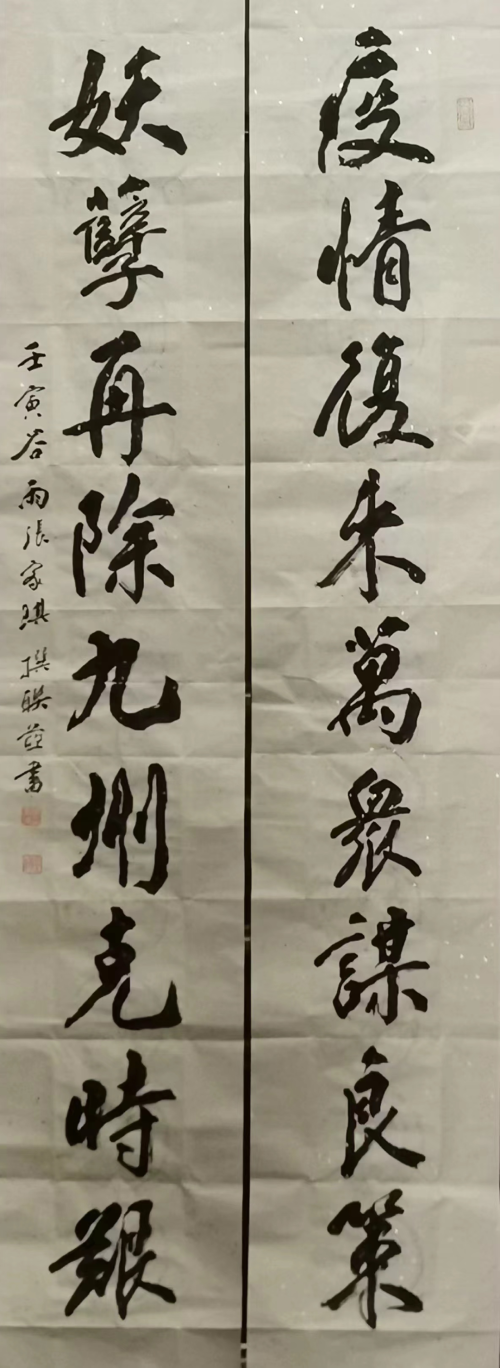 疫情復来萬衆謀良策
妖孽再除九州克時艱
壬寅谷雨張家琪撰联並書